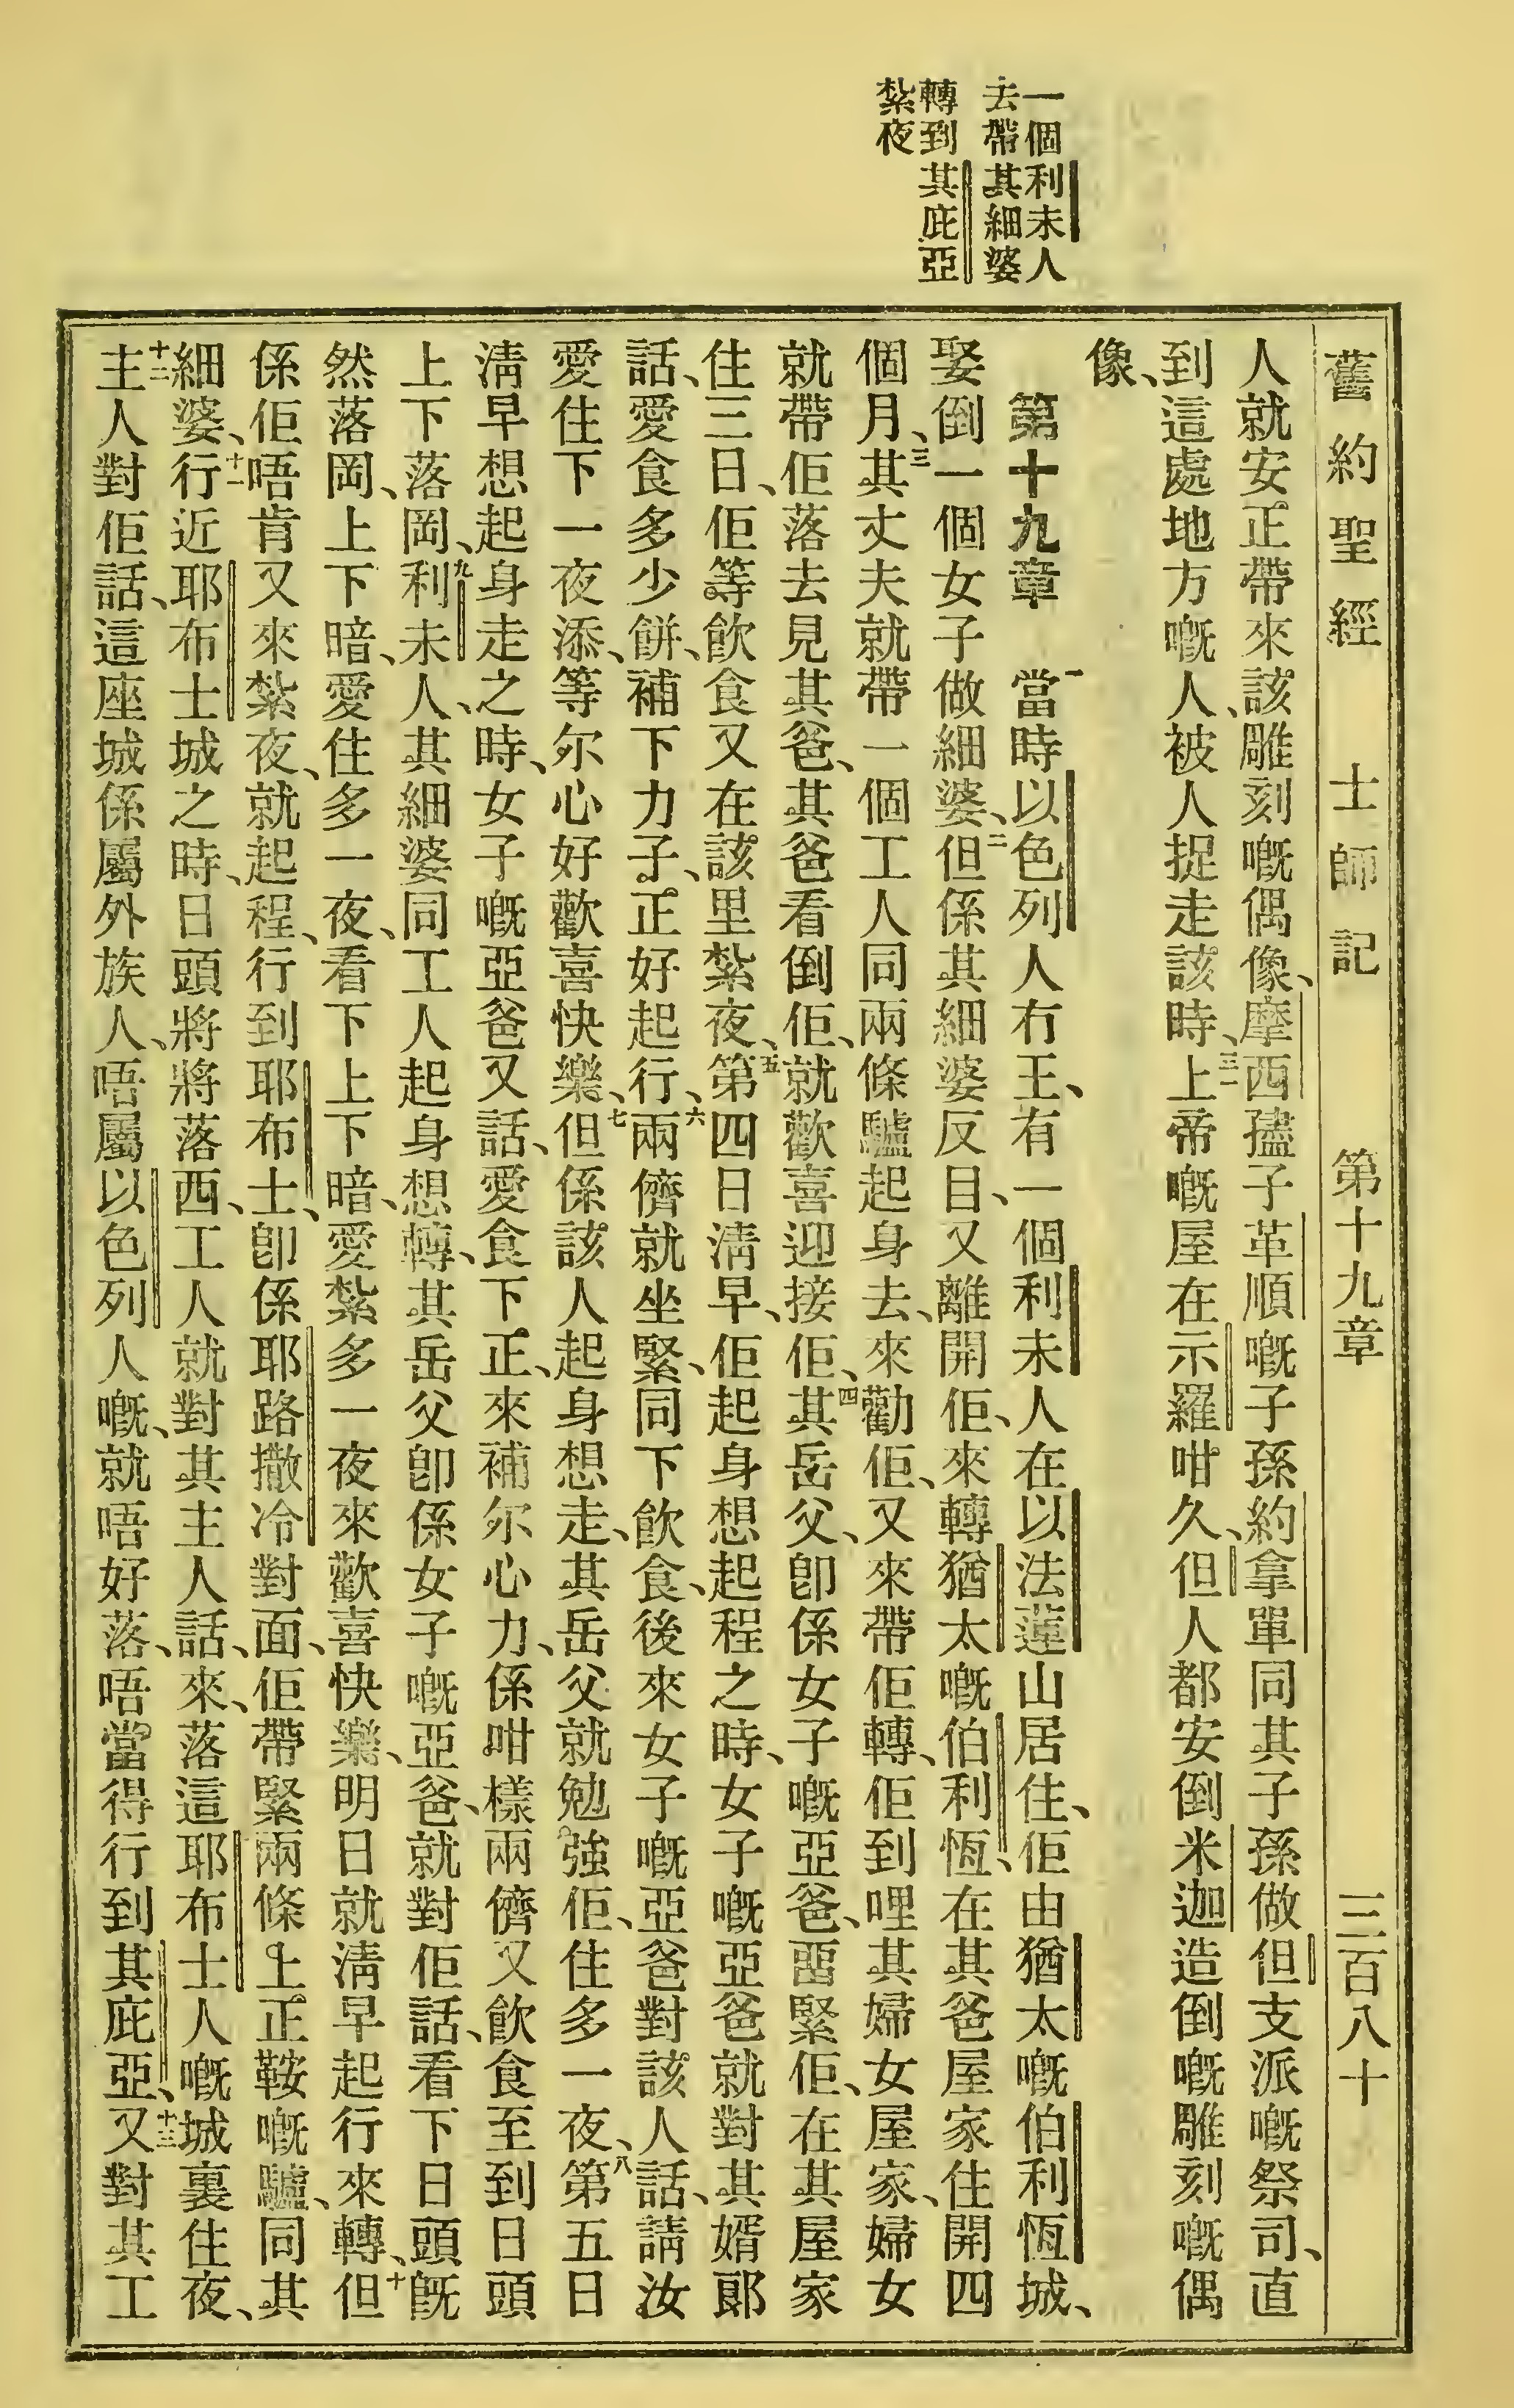 一個利未人
去帶其細婆
轉到其庇亞
紮夜
舊約聖經 士師記 第十九章 三百八十
人就安正帶來該雕刻嘅偶像、摩西𡥧子革順嘅子孫約拿單同其子孫做但支派嘅祭司、直
到這處地方嘅人、被人捉走該時、三一上帝嘅屋在示羅咁久、但人都安倒米迦造倒嘅雕刻嘅偶
像、
第十九章 一當時以色列人冇王、有一個利未人在以法蓮山居住、佢由猶太嘅伯利恆城、
娶倒一個女子做細婆、二但係其細婆反目、又離開佢、來轉猶太嘅伯利恆、在其爸屋家住開四
個月、三其丈夫就帶一個工人同兩條驢起身去、來勸佢、又來帶佢轉、佢到哩其婦女屋家、婦女
就帶佢落去見其爸、其爸看倒佢、就歡喜迎接佢、四其岳父、卽係女子嘅亞爸、䛐緊佢、在其屋家
住三日、佢等飮食又在該里紮夜、五第四日淸早、佢起身想起程之時、女子嘅亞爸就對其婿郞
話、愛食多少餠、補下力子、正好起行、六兩儕就坐緊、同下飮食、後來女子嘅亞爸對該人話、請汝
愛住下一夜添、等尔心好歡喜快樂、七但係該人起身想走、其岳父就勉強佢、住多一夜、八第五日
淸早想起身走之時、女子嘅亞爸又話、愛食下正、來補尔心力、係咁樣兩儕又飮食至到日頭
上下落岡、九利未人、其細婆同工人起身想轉、其岳父卽係女子嘅亞爸、就對佢話、看下日頭旣
然落岡、上下暗、愛住多一夜、看下上下暗、愛紮多一夜來歡喜快樂、明日就淸早起行來轉、十但
係佢唔肯又來紮夜、就起程、行到耶布士、卽係耶路撒冷對面、佢帶緊兩條上正鞍嘅驢、同其
細婆、十一行近耶布士城之時、日頭將將落西、工人就對其主人話、來、落這耶布士人嘅城裏住夜、
十二主人對佢話、這座城係屬外族人、唔屬以色列人嘅、就唔好落、唔當得行到其庇亞、十三又對其工